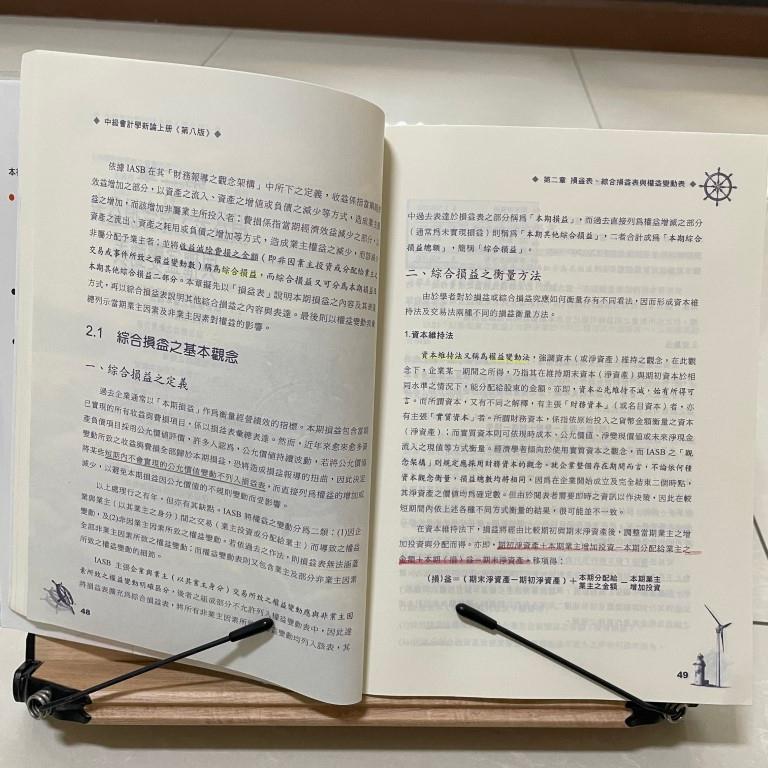 ◆ 中級會計學新論上冊《第八版》 ◆
依據 IASB 在其「財務報導之觀念架構」中所下之定義，收益係指當期經濟
效益增加之部分，以資產之流入、資產之增值或負債之減少等方式，造成業主權
益之增加，而該增加非屬業主所投入者；費損係指當期經濟效益減少之部分，以
資產之流出、資產之耗用或負債之增加等方式，造成業主權益之減少，而該減少
非屬分配予業主者；並將收益減除費損之金額（即非因業主投資或分配給業主之
交易或事件所致之權益變動數）稱為綜合損益，而綜合損益又可分為本期損益及
本期其他綜合損益二部分。本章擬先以「損益表」說明本期損益之內容及其表達
方式，再以綜合損益表說明其他綜合損益之內容與表達。最後則以權益變動表彙
總列示當期業主因素及非業主因素對權益的影響。
2.1 綜合損益之基本觀念
一、綜合損益之定義
過去企業通常以「本期損益」作為衡量經營績效的指標。本期損益包含當期
已實現的所有收益與費損項目，係以損益表彙總表達。然而，近年來愈來愈多資
產負債項目採用公允價值評價，許多人認為，公允價值持續波動，若將公允價值
變動所致之收益與費損全部歸於本期損益，恐將造成損益報導的扭曲，因此決定
將某些短期內不會實現的公允價值變動不列入損益表，而直接列為權益的增加或
減少，以避免本期損益因公允價值的不規則變動而受影響。
以上處理行之有年，但亦有其缺點。IASB 將權益之變動分為二類：(1)因企
業與業主（以其業主之身分）間之交易（業主投資或分配給業主）而導致之權益
變動，及(2)非因業主因素所致之權益變動。若依過去之作法，則損益表無法涵蓋
全部非業主因素所致之權益變動；而權益變動表則又包含業主及部分非業主因素
所致之權益變動的細節。
IASB 主張企業與業主（以其業主身分）交易所致之權益變動應與非業主因
素所致之權益變動明確區分，後者之組成部分不允許列入權益變動表中，因此遂
將損益表擴充為綜合損益表，將所有非業主因素所致權益變動均列入該表，其
48
◆ 第二章 損益表、綜合損益表與權益變動表 ◆
中過去表達於損益表之部分稱為「本期損益」，而過去直接列為權益增減之部分
（通常為未實現損益）則稱為「本期其他綜合損益」，二者合計成為「本期綜合
損益總額」，簡稱「綜合損益」。
二、綜合損益之衡量方法
由於學者對於損益或綜合損益究應如何衡量存有不同看法，因而形成資本維
持法及交易法兩種不同的損益衡量方法。
1.資本維持法
資本維持法又稱為權益變動法，強調資本（或淨資產）維持之觀念，在此觀
念下，企業某一期間之所得，乃指其在維持期末資本（淨資產）與期初資本於相
同水準之情況下，能分配給股東的金額。亦即，資本必先維持不減，始有所得可
言。而所謂資本，又有不同之解釋，有主張「財務資本」（或名目資本）者，亦
有主張「實質資本」者。所謂財務資本，係指依原始投入之貨幣金額衡量之資本
（淨資產）；而實質資本則可依現時成本、公允價值、淨變現價值或未來淨現金
流入之現值等方式衡量。經濟學者傾向於使用實質資本之觀念，而 IASB 之「觀
念架構」則規定應採用財務資本的觀念。就企業整個存在期間而言，不論依何種
資本觀念衡量，損益總數均將相同，因為在企業開始成立及完全結束二個時點，
其淨資產之價值均為確定數。但由於閱表者需要即時之資訊以作決策，因此在較
短期間內依上述各種不同方式衡量的結果，很可能並不一致。
在資本維持法下，損益將經由比較期初與期末淨資產後，調整當期業主之增
加投資與分配而得。亦即，期初淨資產＋本期業主增加投資－本期分配給業主之
金額＋本期（損）益＝期末淨資產，移項得：
（損）益＝（期末淨資產－期初淨資產）＋本期分配給業主之金額－本期業主增加投資
49